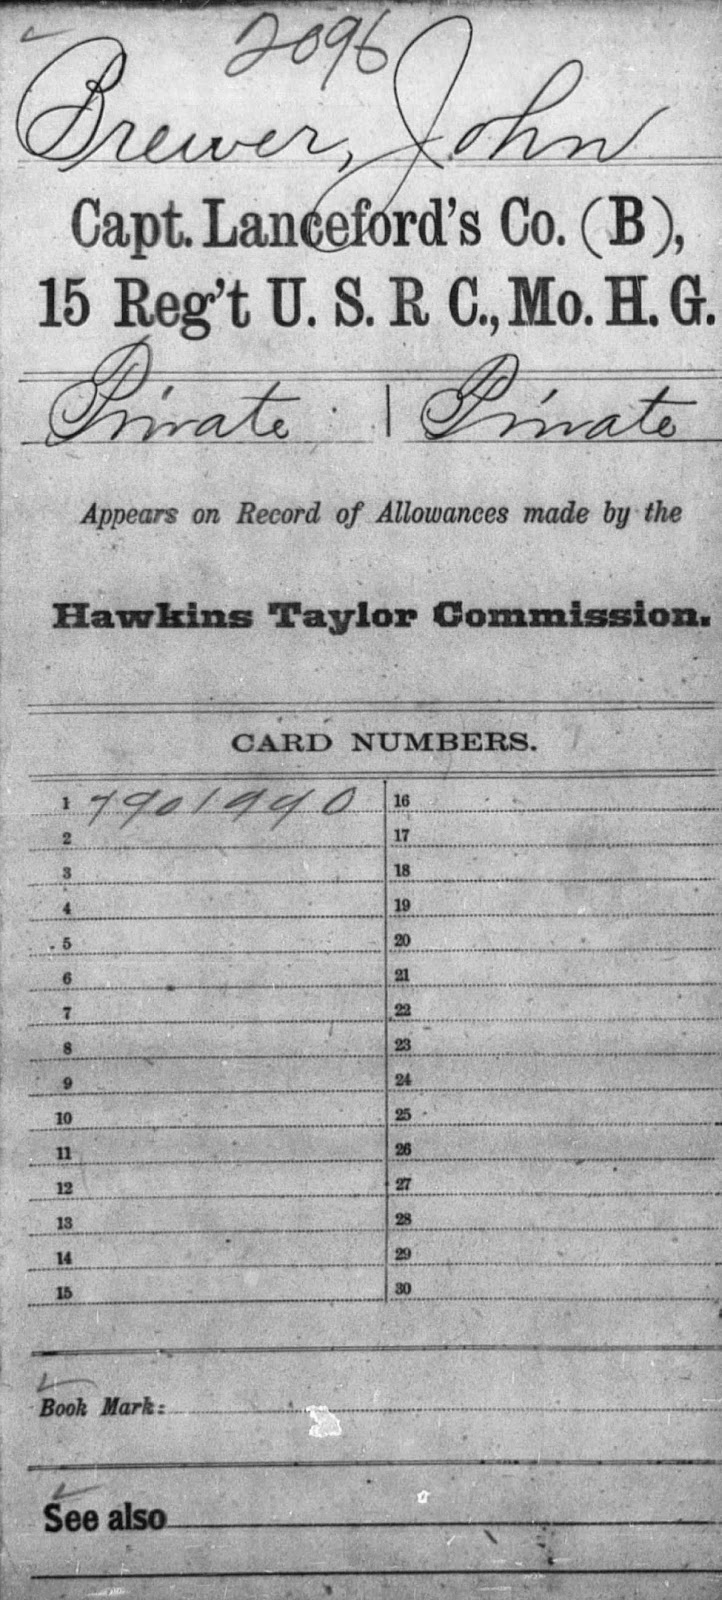 2096
Brewer, John
Capt. Lanceford's Co. (B),
15 Reg't U. S. R C., Mo. H. G.
Private | Private
Appears on Record of Allowances made by the
Hawkins Taylor Commission.
CARD NUMBERS.
1 7901940
2
3
4
5
6
7
8
9
10
11
12
13
14
15
16
17
18
19
20
21
22
23
24
25
26
27
28
29
30
Book Mark:
See also